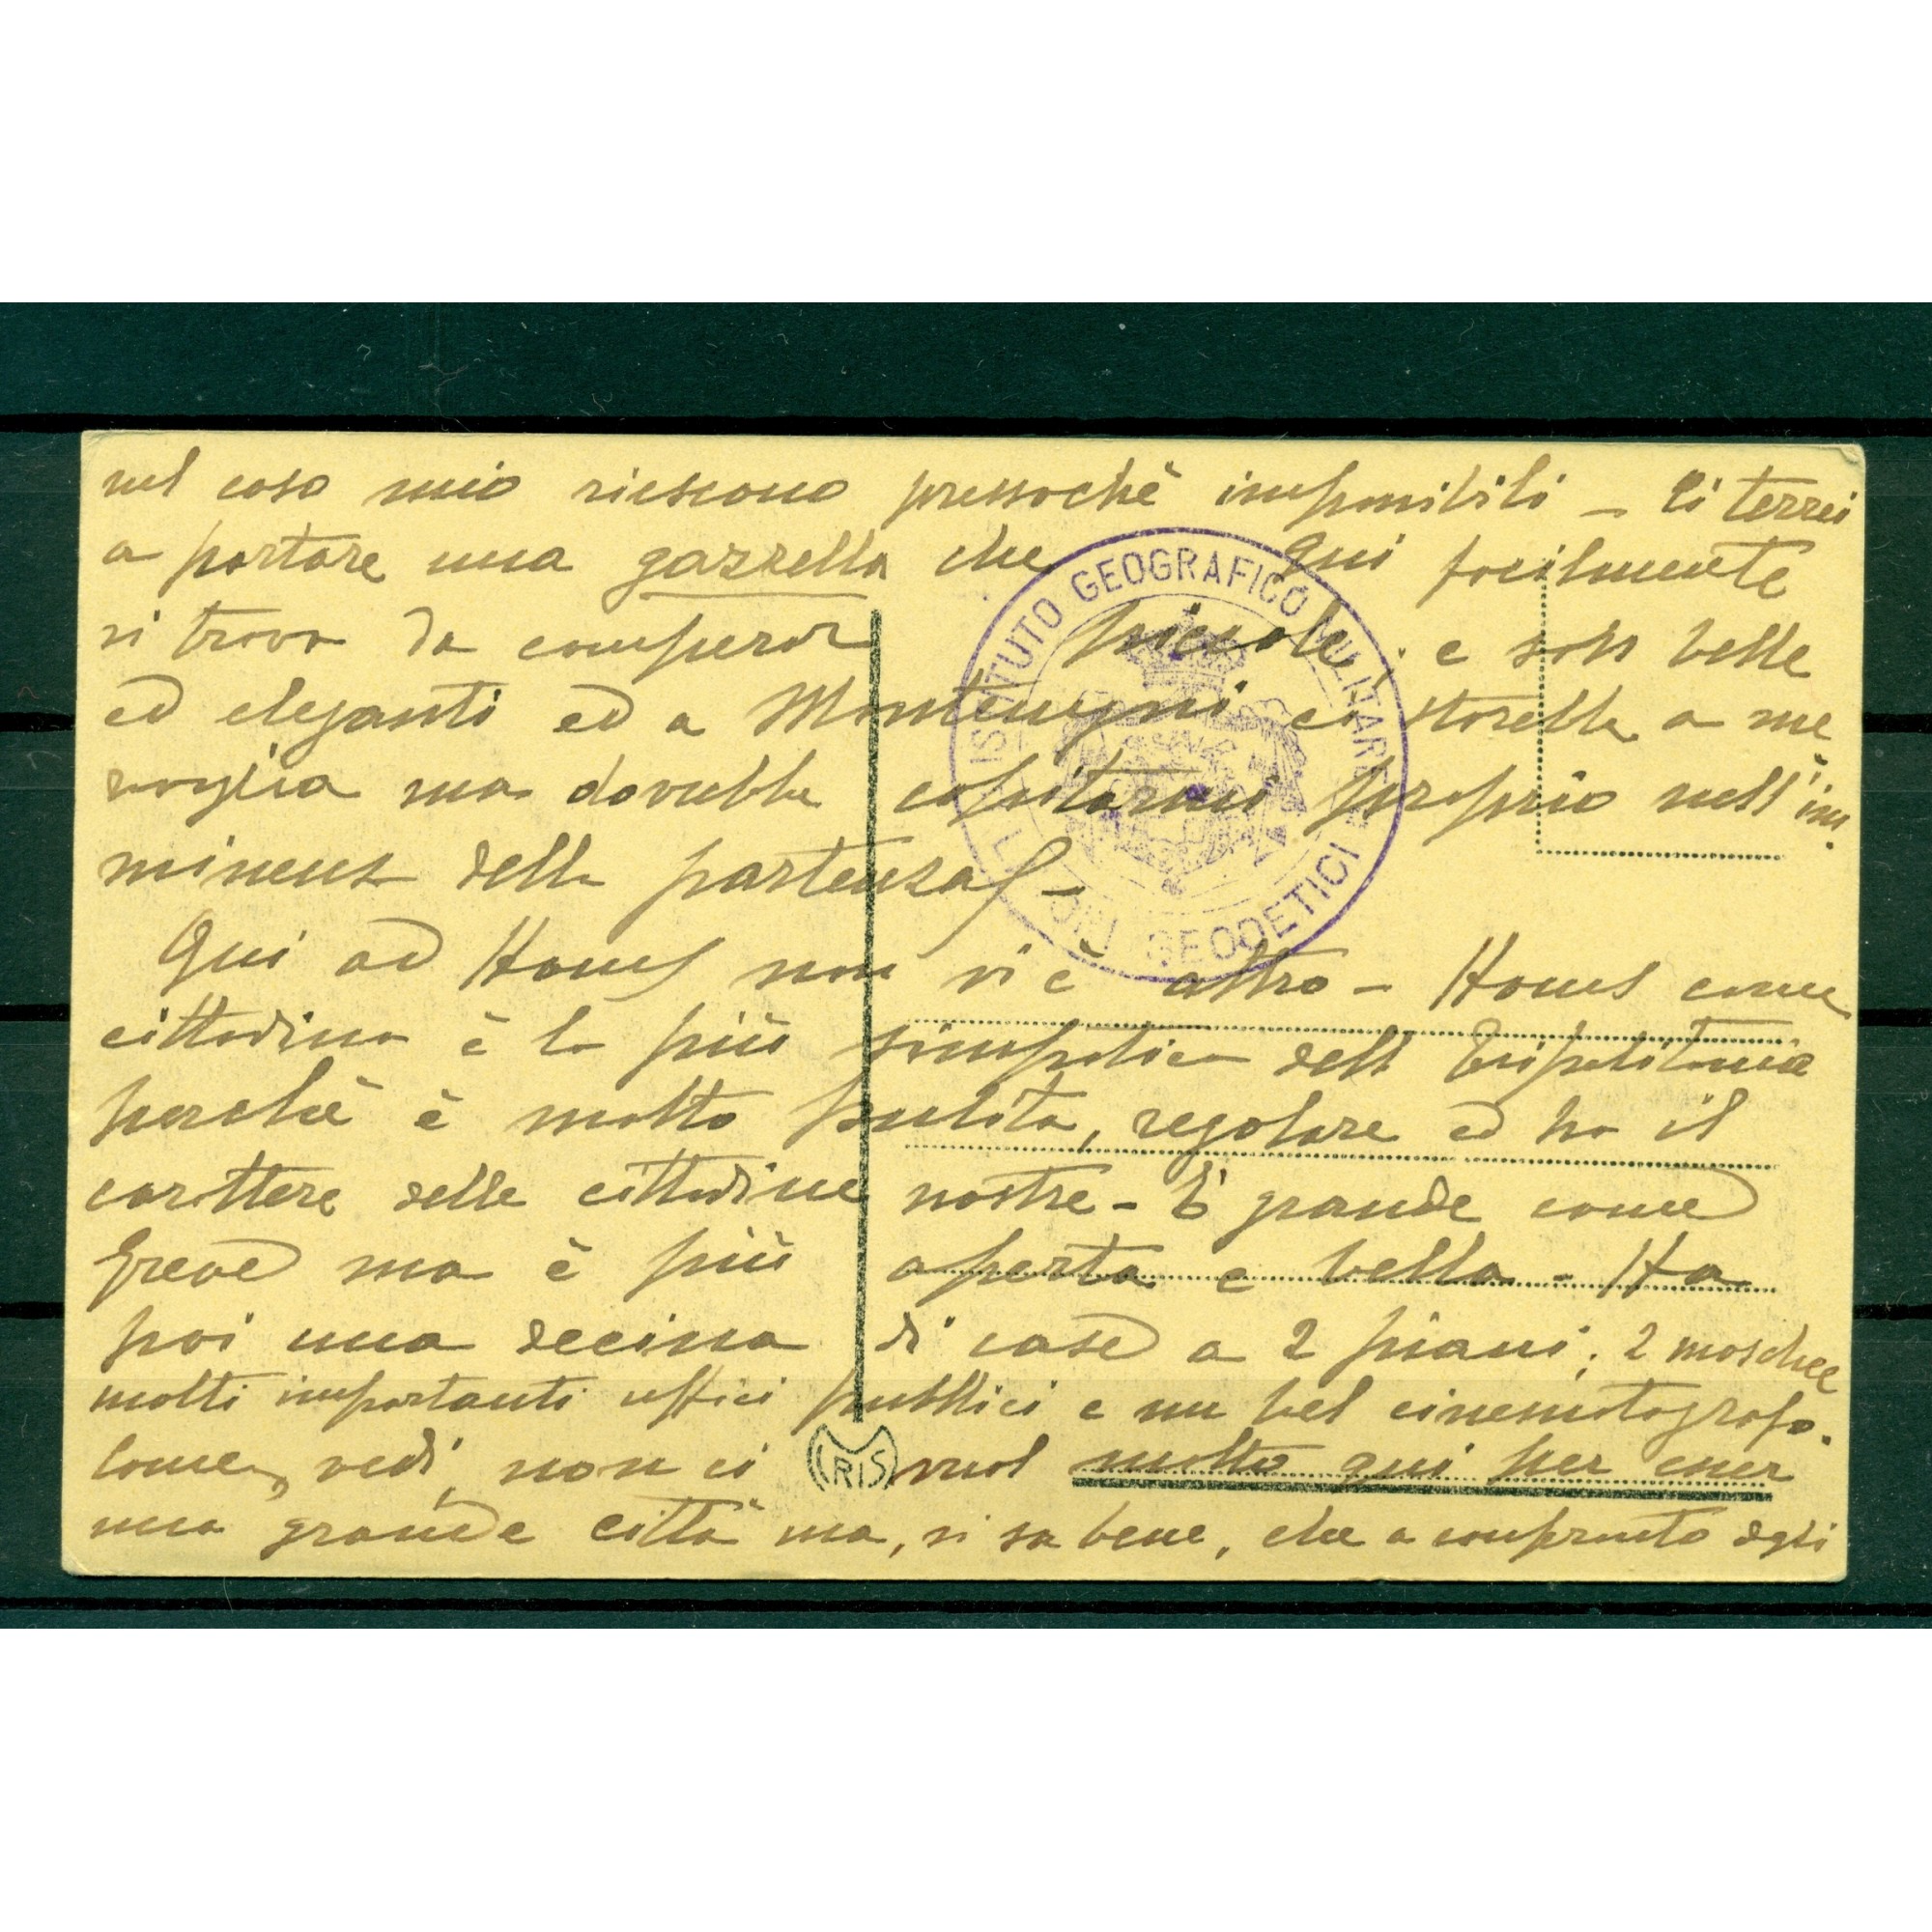 nel caso mio riescono pressochè impossibili - Ci terrei
a portare una gazzella che qui facilmente
si trova da comperar piccole, e son belle
ed eleganti ed a Montenegri starelle a me
voglia ma dovrebbe capitarmi proprio nell'im-
minenza della partenza -
Qui ad Homs non vi è altro - Homs come
cittadina è la più simpatica dell Tripolitania
perchè è molto pulita, regolare ed ha il
carattere delle cittadine nostre - È grande come
Greve ma è più aperta e bella - Ha
poi una decina di case a 2 piani; 2 moschee
molti importanti uffici pubblici e un bel cinematografo.
Come, vedi, non ci vuol molto qui per esser
una grande città ma, si sa bene, che a confronto degli
ISTITUTO GEOGRAFICO MILITARE
LAVORI GEODETICI
IRIS